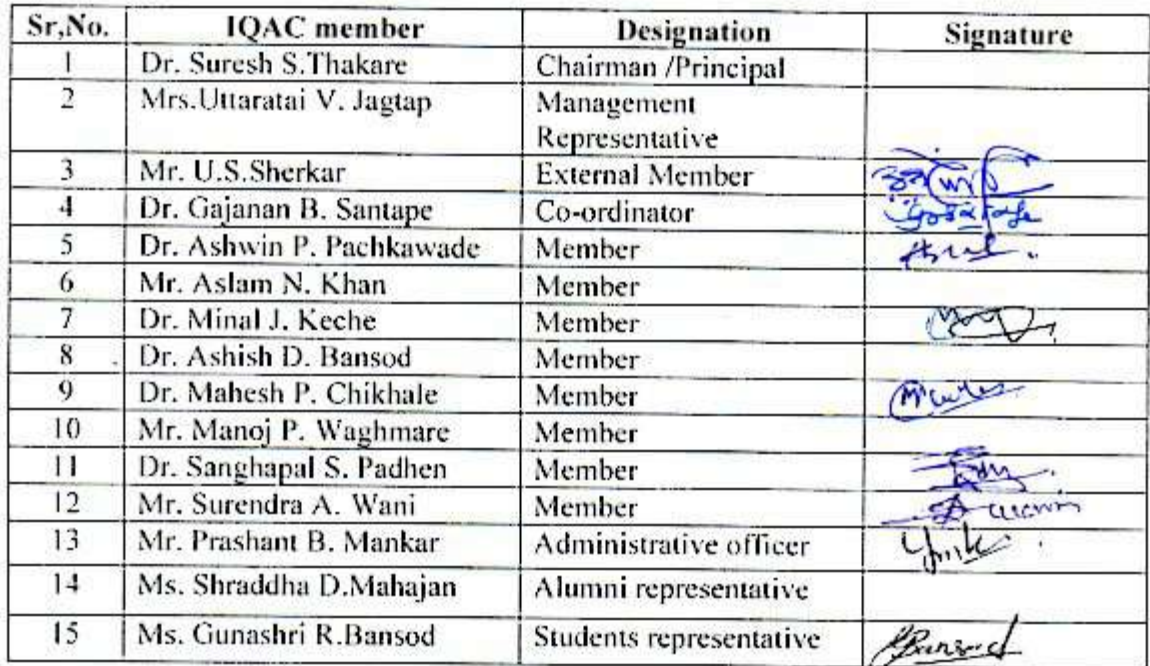 Sr,No. IQAC member Designation Signature
1 Dr. Suresh S.Thakare Chairman /Principal
2 Mrs.Uttaratai V. Jagtap Management
Representative
3 Mr. U.S.Sherkar External Member
4 Dr. Gajanan B. Santape Co-ordinator
5 Dr. Ashwin P. Pachkawade Member
6 Mr. Aslam N. Khan Member
7 Dr. Minal J. Keche Member
8 Dr. Ashish D. Bansod Member
9 Dr. Mahesh P. Chikhale Member
10 Mr. Manoj P. Waghmare Member
11 Dr. Sanghapal S. Padhen Member
12 Mr. Surendra A. Wani Member
13 Mr. Prashant B. Mankar Administrative officer
14 Ms. Shraddha D.Mahajan Alumni representative
15 Ms. Gunashri R.Bansod Students representative